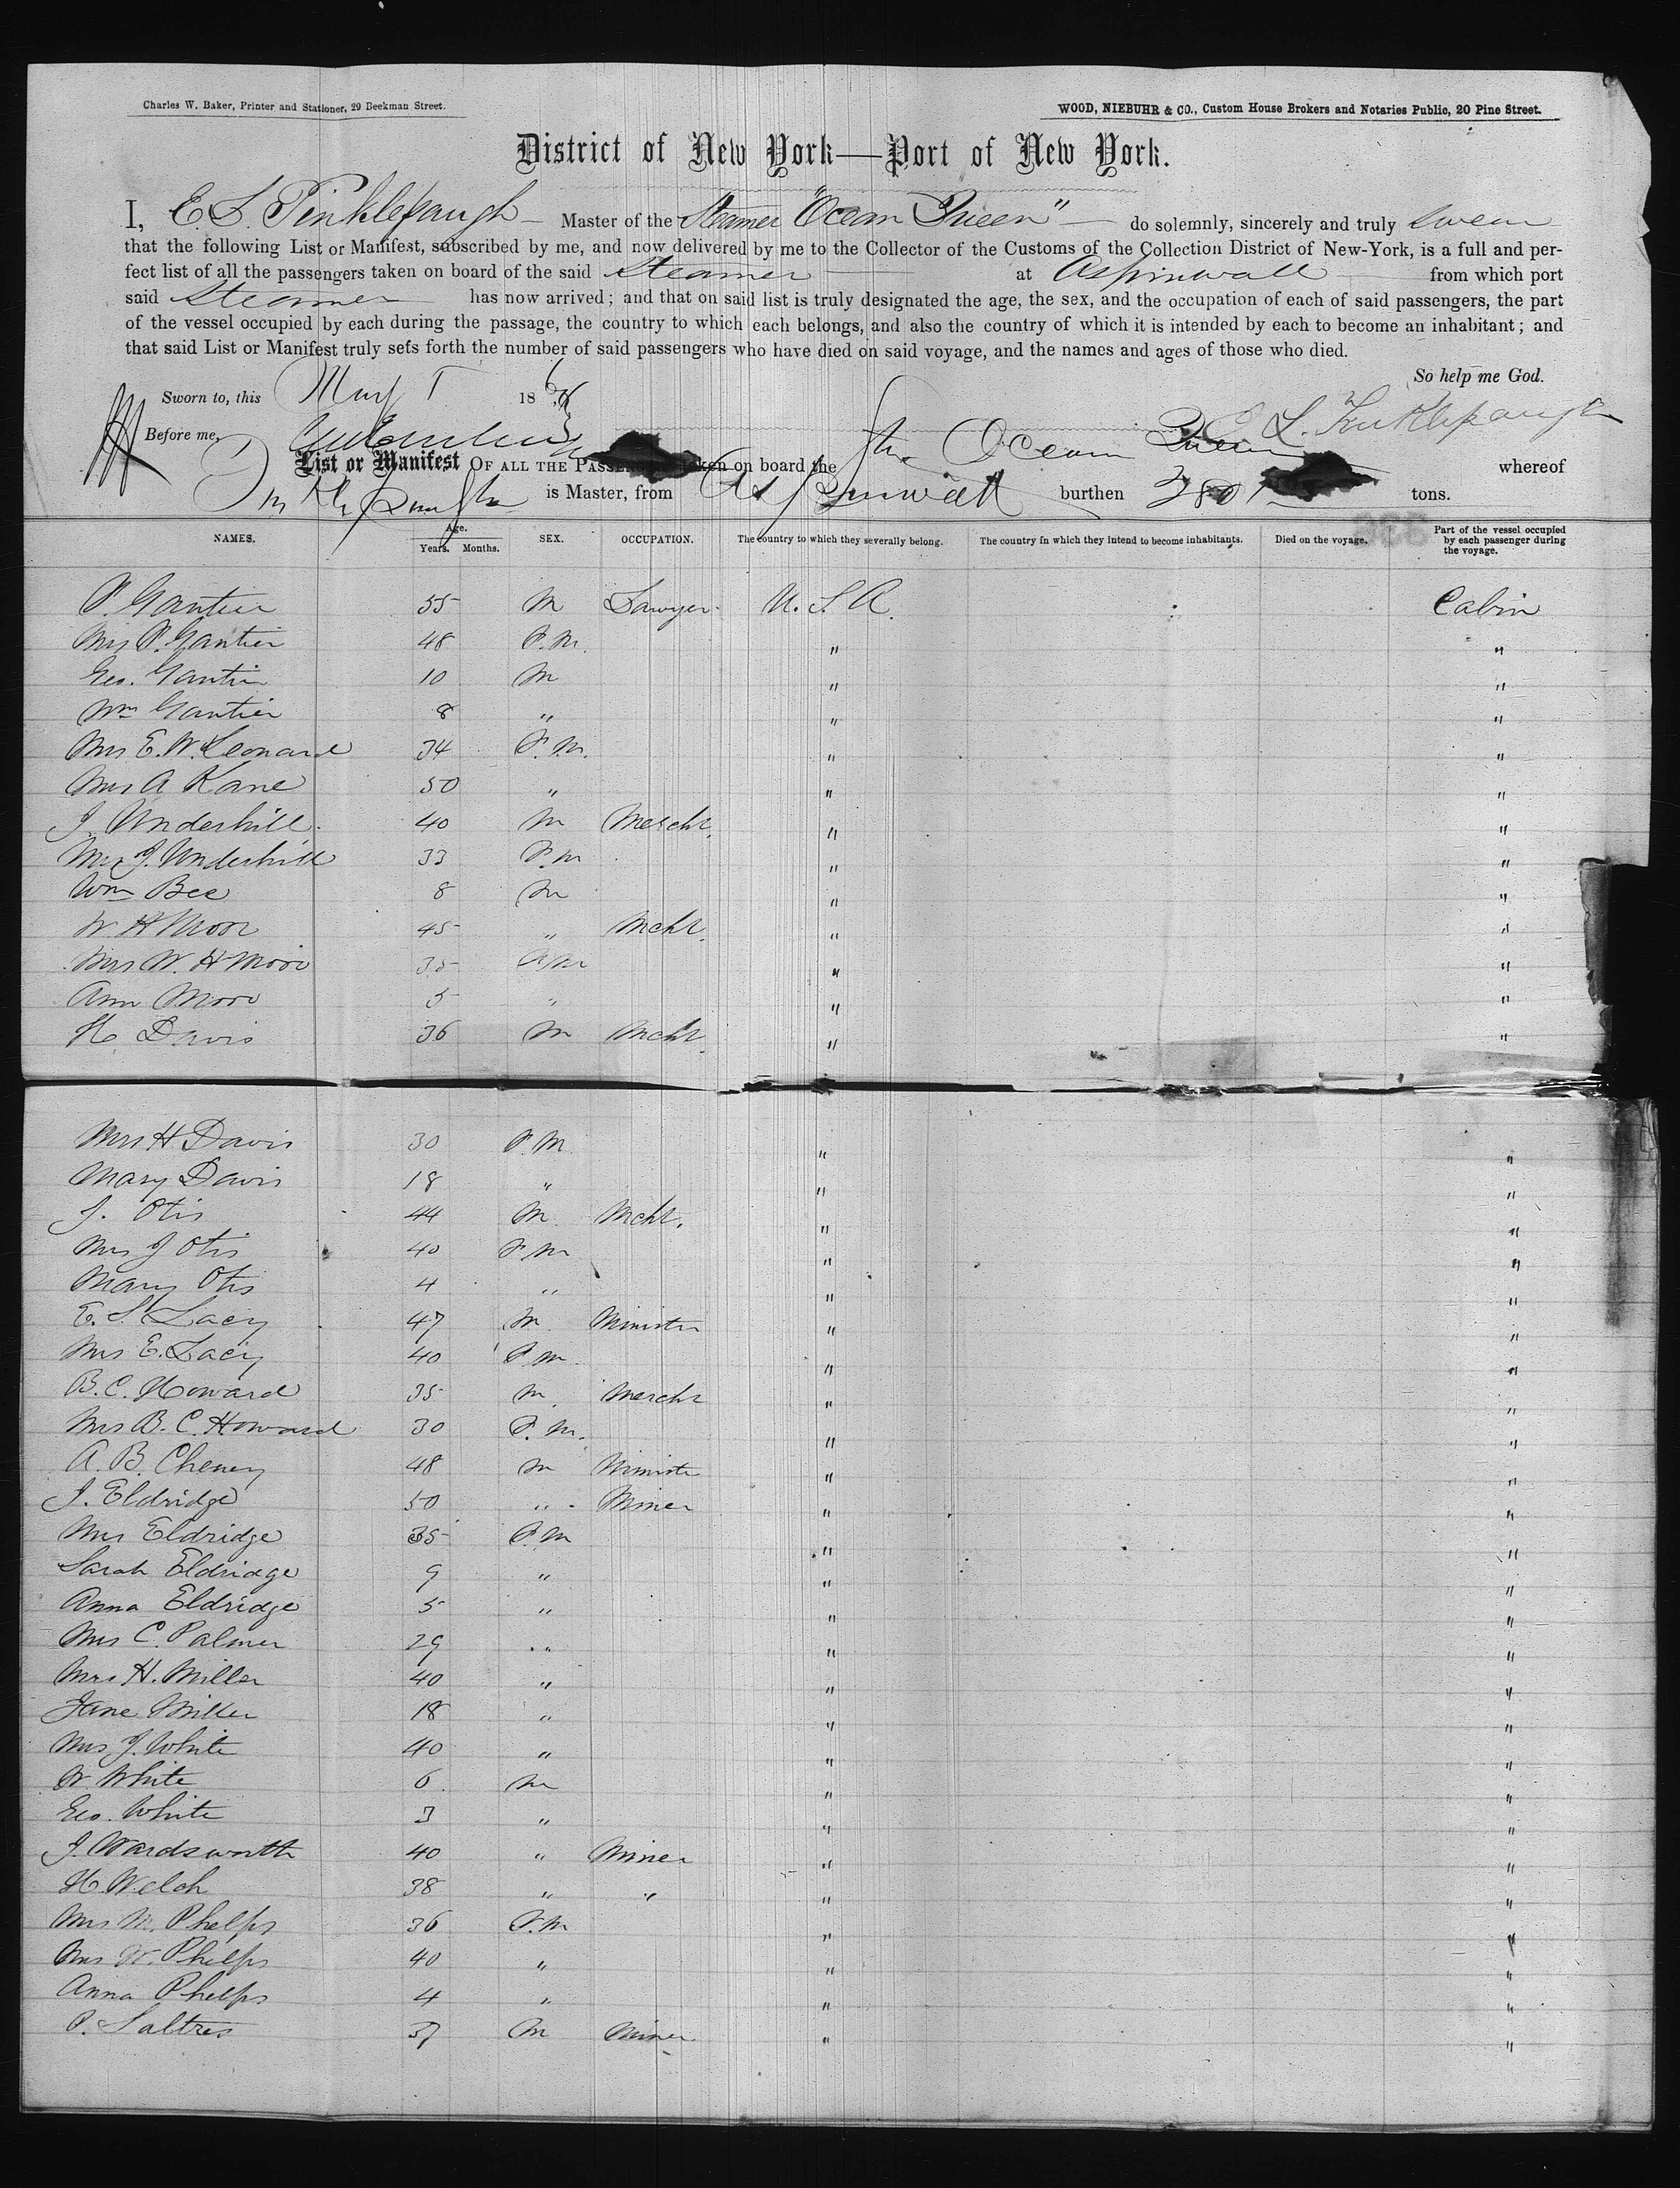 Charles W. Baker, Printer and Stationer, 29 Beekman Street.
WOOD, NIEBUHR & CO., Custom House Brokers and Notaries Public, 20 Pine Street.
District of New York—Port of New York.
I, E. L. Tinklepaugh Master of the Steamer "Ocean Queen" do solemnly, sincerely and truly swear
that the following List or Manifest, subscribed by me, and now delivered by me to the Collector of the Customs of the Collection District of New-York, is a full and per-
fect list of all the passengers taken on board of the said Steamer at Aspinwall from which port
said Steamer has now arrived; and that on said list is truly designated the age, the sex, and the occupation of each of said passengers, the part
of the vessel occupied by each during the passage, the country to which each belongs, and also the country of which it is intended by each to become an inhabitant; and
that said List or Manifest truly sets forth the number of said passengers who have died on said voyage, and the names and ages of those who died.
So help me God.
Sworn to, this May 1 186
E. L. Tinklepaugh
Before me,
List or Manifest OF ALL THE PASSENGERS taken on board the Str Ocean Queen whereof
Tinklepaugh is Master, from Aspinwall burthen 2801 tons.
NAMES. Age. Years. Months. SEX. OCCUPATION. The country to which they severally belong. The country in which they intend to become inhabitants. Died on the voyage. Part of the vessel occupied by each passenger during the voyage.
P. Gantier 55 M Lawyer U.S.A. Cabin
Mrs P. Gantier 48 F.M. " "
Geo. Gantier 10 M " "
Wm Gantier 8 " " "
Mrs E. W. Leonard 34 F.M. " "
Mrs A Kane 50 " " "
J. Underhill 40 M Mercht. " "
Mrs J. Underhill 33 F.M " "
Wm Bee 8 M " "
W. H Moor 45 " Mcht. " "
Mrs W. H Moor 35 F.M " "
Ann Moor 5 " " "
H. Davis 36 M Mcht. " "
Mrs H. Davis 30 F.M " "
Mary Davis 18 " " "
J. Otis 44 M Mcht. " "
Mrs J Otis 40 F.M " "
Mary Otis 4 " " "
E. S. Lacy 47 M Minister " "
Mrs E. Lacy 40 F.M " "
B. C. Howard 35 M. Mercht " "
Mrs B. C. Howard 30 F.M. " "
A. B. Cheney 48 M Ministe " "
J. Eldridge 50 " Miner " "
Mrs Eldridge 35 F.M " "
Sarah Eldridge 9 " " "
Anna Eldridge 5 " " "
Mrs C. Palmer 29 " " "
Mrs H. Miller 40 " " "
Jane Miller 18 " " "
Mrs J. White 40 " " "
W. White 6 M " "
Geo. White 3 " " "
J. Wardsworth 40 " Miner " "
H. Welch 38 " " " "
Mrs M. Phelps 36 F.M " "
Mrs W. Phelps 40 " " "
Anna Phelps 4 " " "
P. Saltres 37 M Miner " "